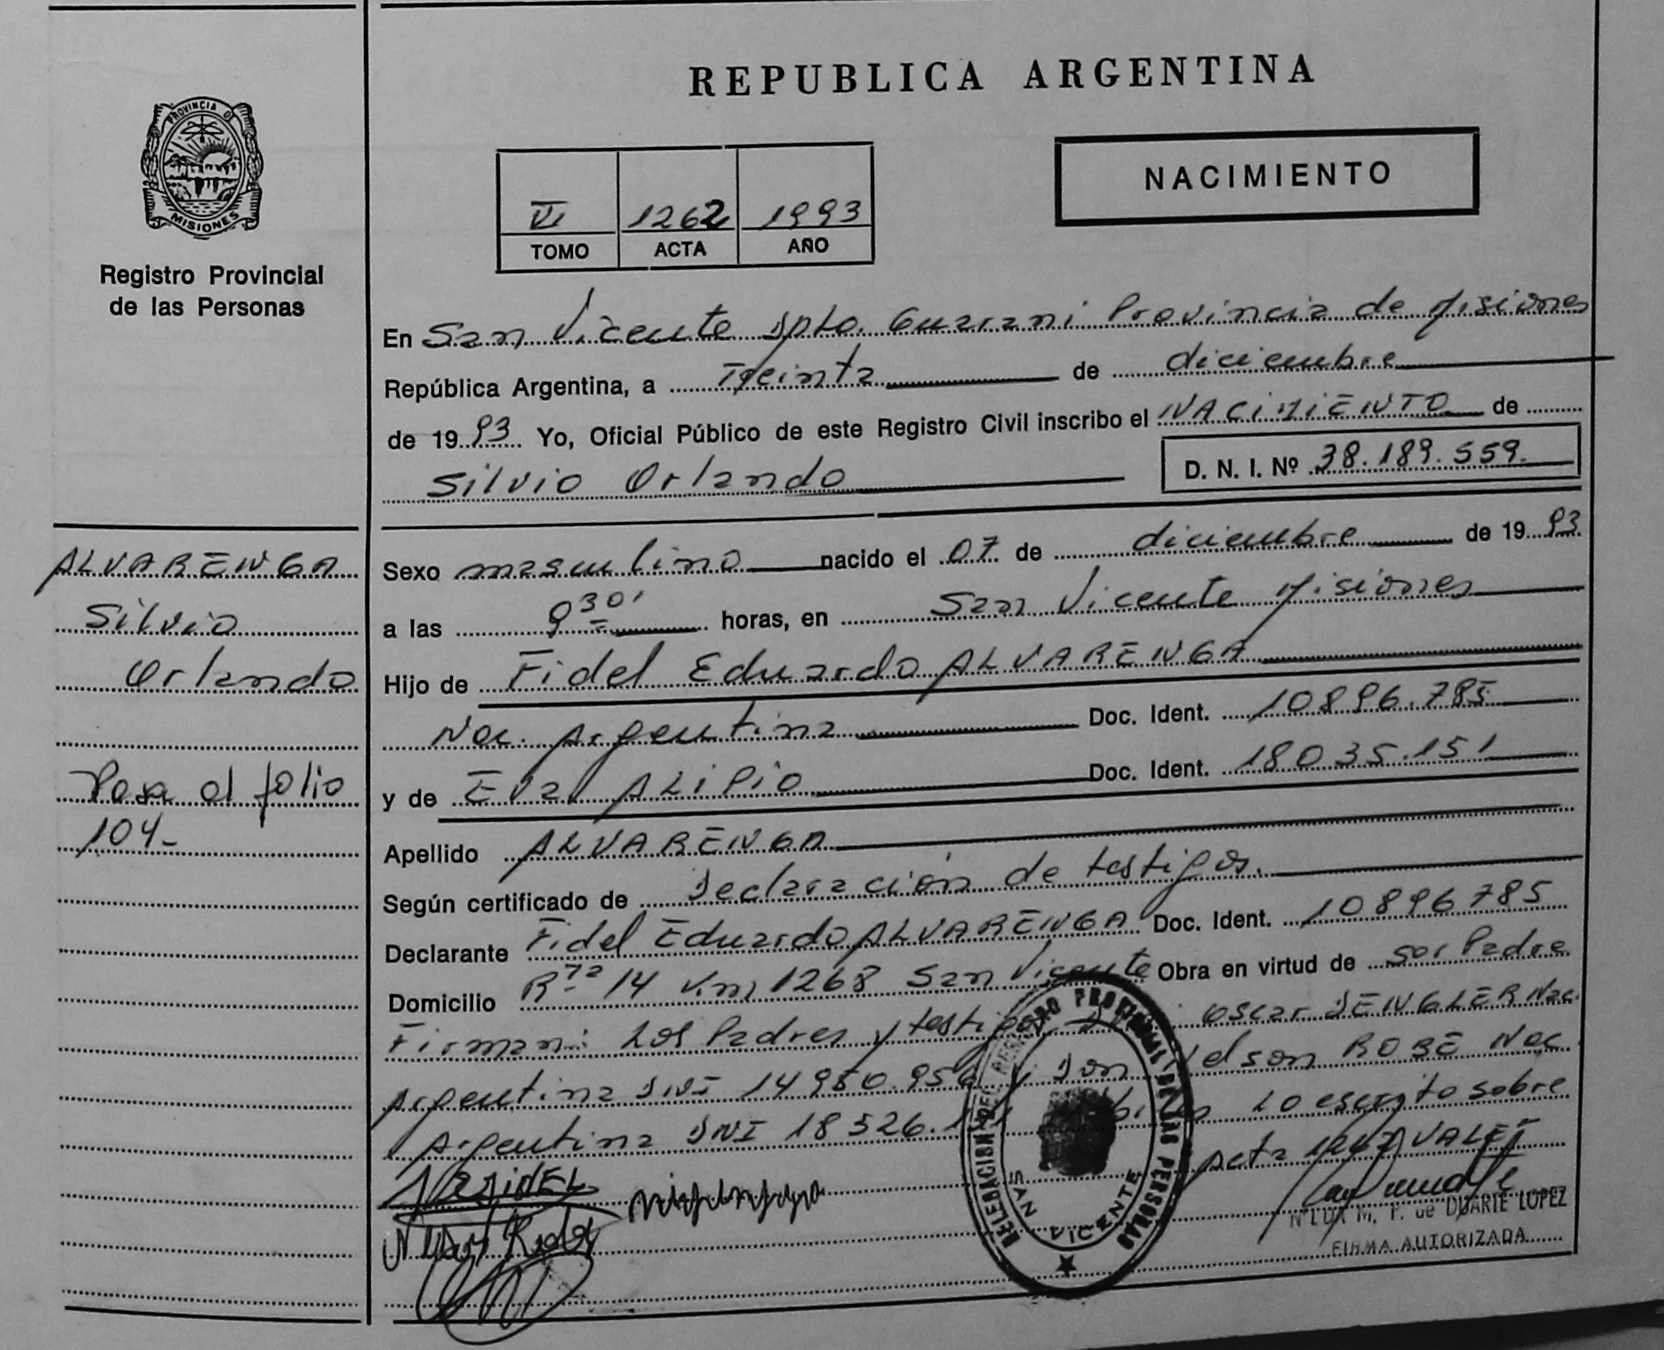 REPUBLICA ARGENTINA
PROVINCIA D
MISIONES
Registro Provincial
de las Personas
NACIMIENTO
VI 1262 1993
TOMO ACTA AÑO
En San Vicente Dpto. Guarani Provincia de Misiones
República Argentina, a Treinta de diciembre
de 1993 Yo, Oficial Público de este Registro Civil inscribo el NACIMIENTO de
Silvio Orlando D. N. I. Nº 38.189.559.
ALVARENGA
Silvio
Orlando
Pasa al folio
104-
Sexo masculino nacido el 07 de diciembre de 1993
a las 9 30' horas, en San Vicente Misiones
Hijo de Fidel Eduardo ALVARENGA
Nac. Argentina Doc. Ident. 10896.785
y de Eva ALIPIO Doc. Ident. 18035.151
Apellido ALVARENGA
Según certificado de Declaración de testigos.
Declarante Fidel Eduardo ALVARENGA Doc. Ident. 10896785
Domicilio Rta 14 Km 1268 San Vicente Obra en virtud de ser Padre
Firman: Los Padres y testigos Oscar DENGLER Nac.
Argentina DNI 14950.95 y Don Nelson ROBE Nac.
Argentina DNI 18526. lo escrito sobre
acta 1262 VALE
DELEGACION DEL REGISTRO PROVINCIAL DE LAS PERSONAS
SAN VICENTE
M. F. de DUARTE LOPEZ
FIRMA AUTORIZADA